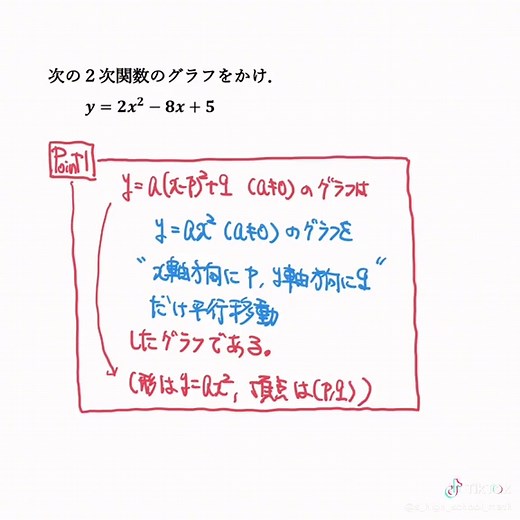 次の２次関数のグラフをかけ．
y = 2x² − 8x + 5
Point 1
y=a(x-p)²+q (a≠0) のグラフは
y=ax² (a≠0) のグラフを
"x軸方向に p, y軸方向に q"
だけ平行移動
したグラフである。
(形は y=ax², 頂点は(p,q))
TikTok